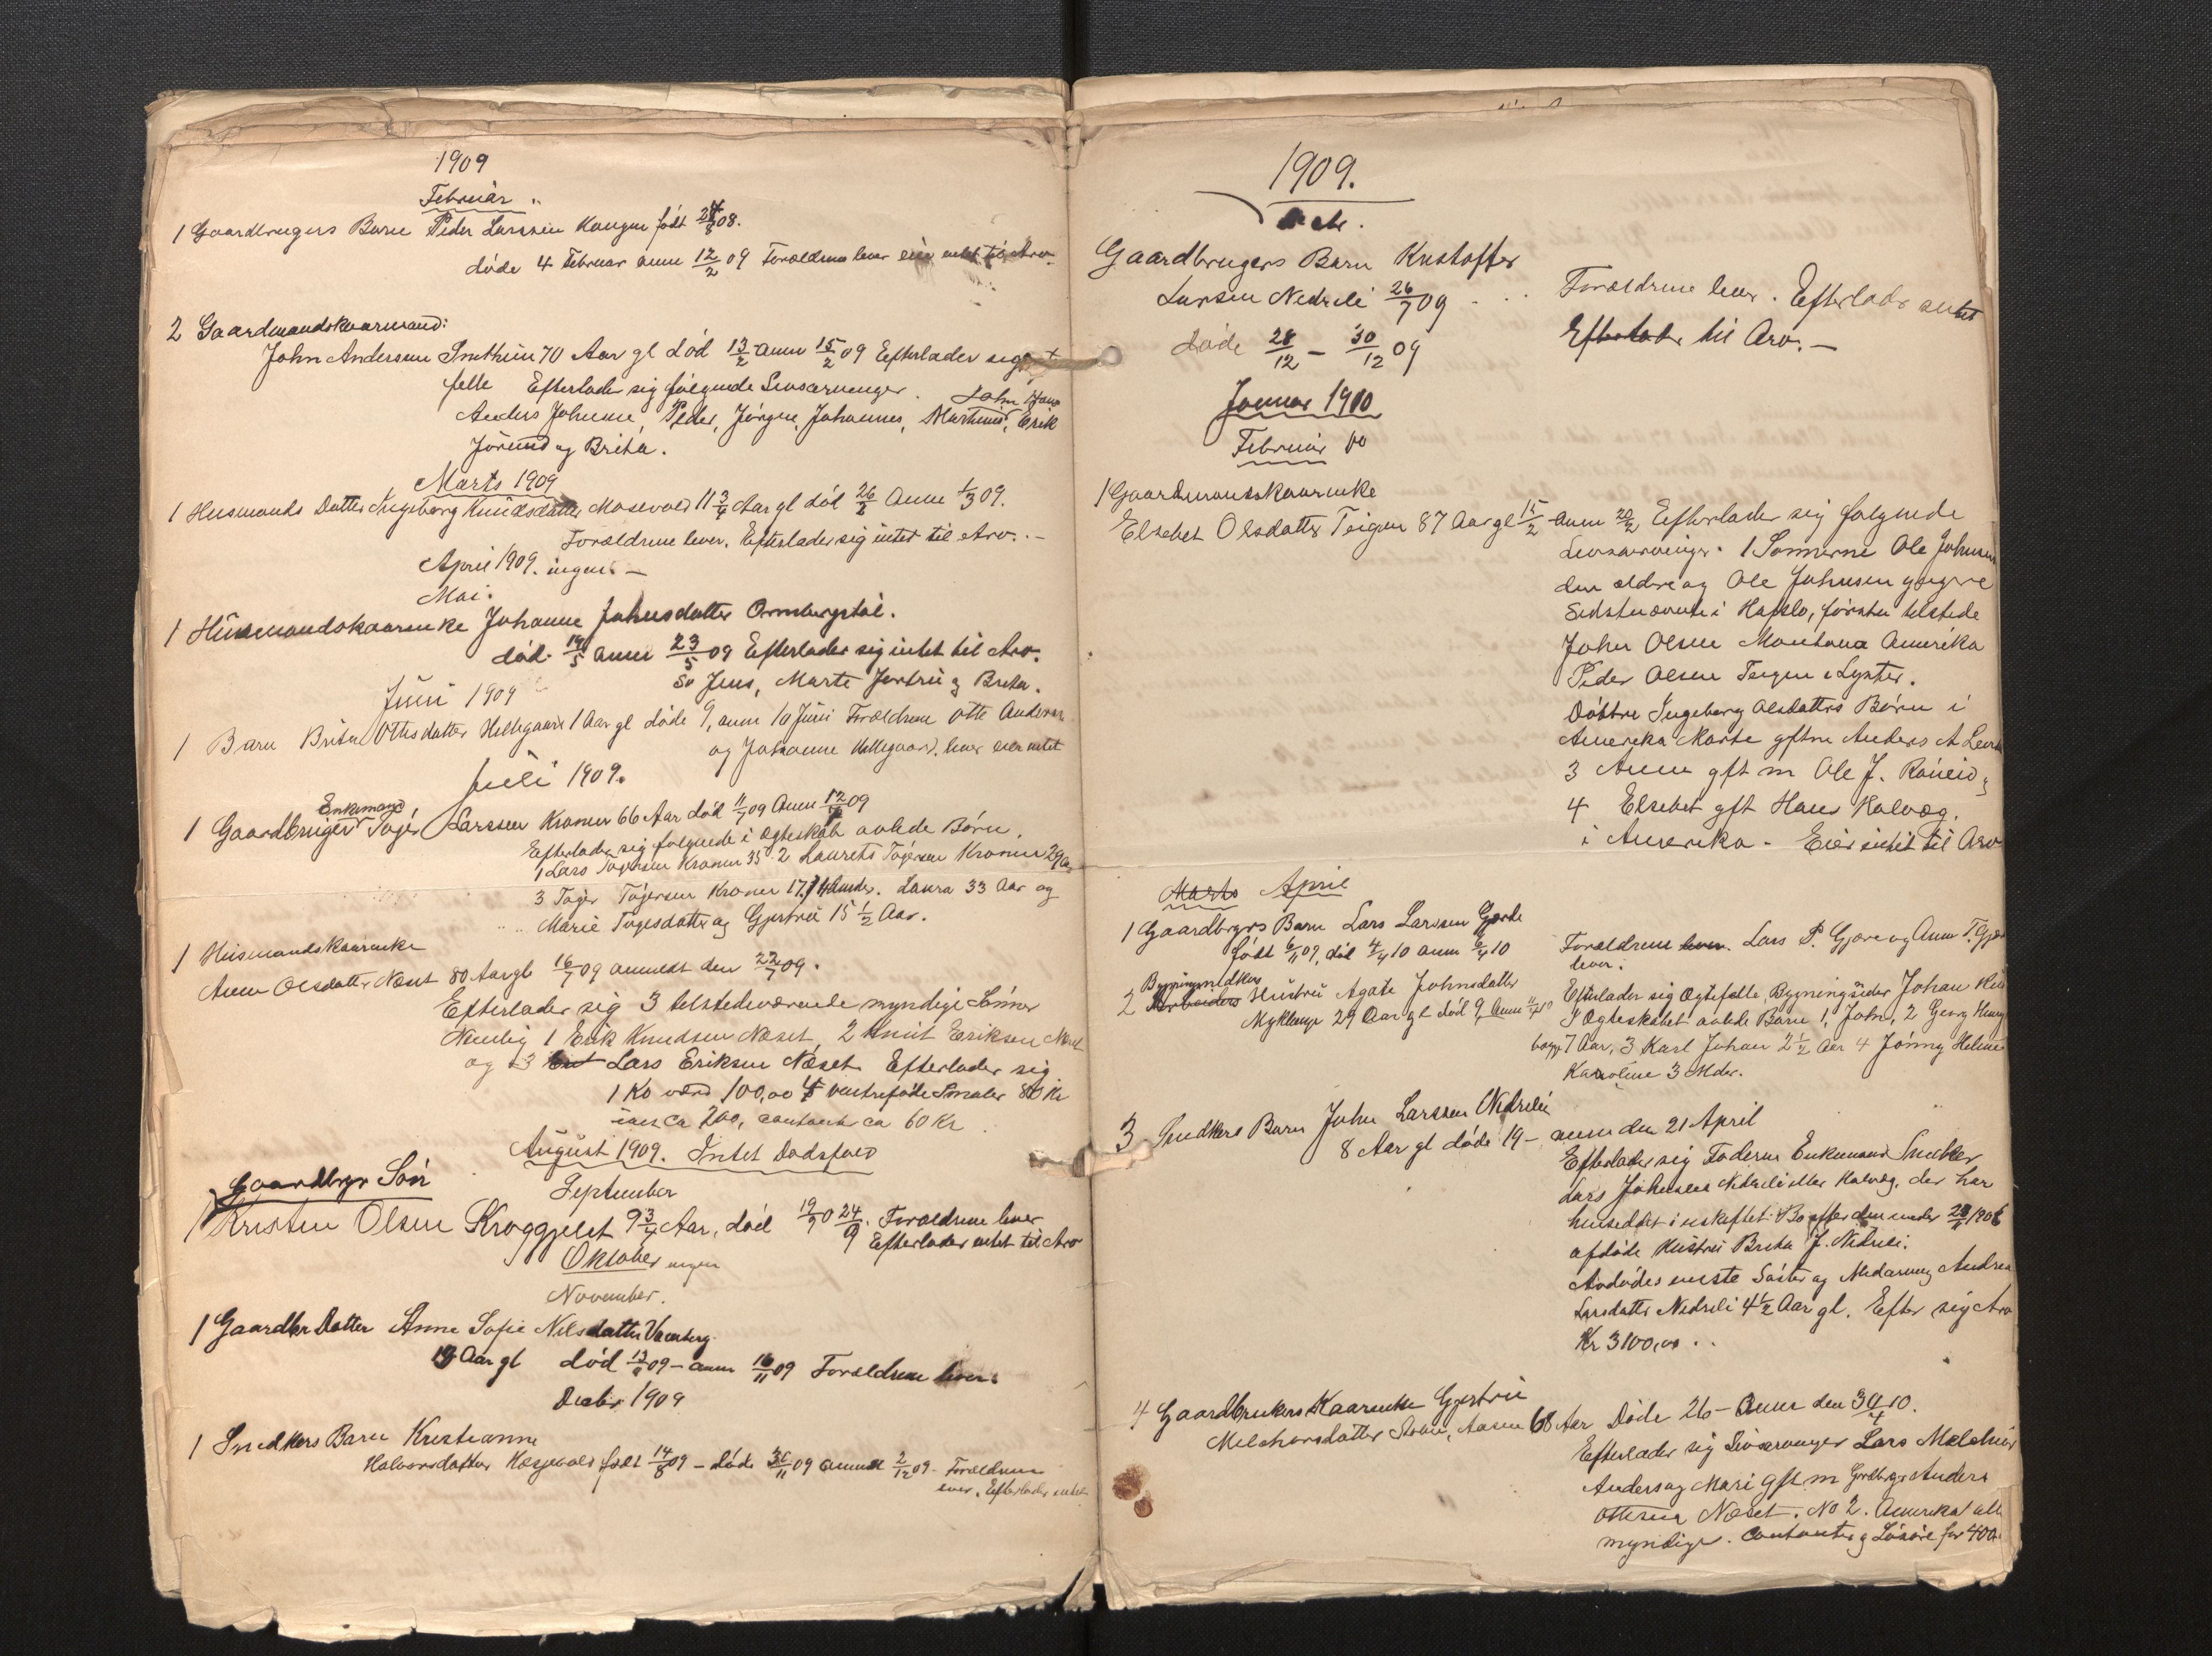 1909
Februar
1 Gaardbrugers Barn Peder Larssen Kaugen født 24/8 08.
døde 4 Februar anm 12/2 09 Forældrene lever eier intet til Arv
2 Gaardmandskaarmand:
John Andersen Smthun 70 Aar gl død 13/2 anm 15/2 09 Efterlader
felle Efterlader sig følgende Livsarvinger. John Hans
Anders Johnsene, Peder, Jørgen, Johannes, Martinus, Erik
Jørund og Brita.
Marts 1909
1 Husmands Datter Ingeborg Knudsdatter Mosevold 11 3/4 Aar gl död 26/2 Anm 1/3 09.
Forældrene lever. Efterlader sig intet til Arv. -
April 1909. ingen. -
Mai.
1 Husmandskaarenke Johanne Johnsdatter Ormbergstøl.
død 19/5 anm 23/5 09 Efterlader sig intet til Arv.
Jens, Marte Jertrü og Brita.
Juni 1909
1 Barn Brita Ottesdatter Hillegaard 1 Aar gl døde 9, anm 10 Juni Forældrene Otte Andersen
og Johanne Hillegaard. lever eier intet
Juli 1909.
Enkemand
1 Gaardbruger Tøger Larssen Kroner 66 Aar död 11/7 09 Anm 12/7 09
Efterlader sig følgende i Ægteskab avlede Børn.
1 Lars Tøgersen Kroner 35 2 Laurets Tøgersen Kroner 29
3 Tøger Tøgersen Kroner 17, 4 Anders. Laura 33 Aar og
Marie Tøgesdatter og Gjertrü 15 1/2 Aar.
1 Husmandskaarenke
Anne Olsdatter Næset 80 Aar gl 16/7 09 anmeldt den 22/7 09.
Efterlader sig 3 tilstedeværende myndige Sønner
Nemlig 1 Erik Knudsen Næset, 2 Knut Eriksen Næset
og 3 Lars Eriksen Næset. Efterlader sig
1 Ko værd 100,00 5 vinterfødte Smaler 80 Kr
ca 200, contant ca 60 Kr
August 1909. Intet Dødsfald
Gaardbrgr Søn
September
1 Kristen Olsen Kroggjelet 9 3/4 Aar, död 19/9 24/9. Forældrene lever
Efterlader intet til Arv
Oktober ingen
November.
1 Gaardbr Datter Anne Sofie Nilsdatter Vaanberg.
19 Aar gl død 13/11 09 - anm 16/11 09 Forældrene lever.
Decbr 1909
1 Snedkers Barn Kristianne
Halvorsdatter Hæsjevold født 14/8 09 - døde 30/11 09 Anmel 2/12 09. Forældrene
lever. Efterlader intet
1909.
Gaardbrugers Barn Kristoffer
Larsen Nedreli 26/7 09 - ..
Døde 28/12 - 30/12 09
Forældrene lever. Efterlader intet
Efterlader til Arv. -
Januar 1910
Februar 10
1 Gaardmandskaarenke
Elsebet Olsdatter Teigen 87 Aar gl 15/2 anm 20/2 Efterlader sig følgende
Livsarvinger. 1 Sønnerne Ole Johnsen
den ældre og Ole Johnsen yngere
Sidstnævnte i Hafslo, første tilstede
John Olsen Montana Amerika
Peder Olsen Teigen i Lyster.
Døttre Ingeborg Olsdatters Børn i
Amerika Marte gftm Anders A
3 Anna gft m Ole J. Røneid
4 Elsebet gft Hans Kalvæg.
i Amerika. - Eier intet til Arv
Marts April
1 Gaardbrgrs Barn Lars Larssen Gjerde
født 6/11 09, død 4/4 10 anm 6/4 10
Forældrene lever. Lars P. Gjerde og Anna T. Gjer
lever.
Bygningsnedkers
2 Arbeiders Hüstrü Agate Johnsdatter
Myklemyr 29 Aar gl død 9 Anm 11/4 10
Efterlader sig Ægtefelle, Bygningsnedker Johan
I Ægteskabet avlede Børn 1, John, 2 Georg Henry
begge 7 Aar, 3 Karl Johan 2 1/2 Aar 4 Jønny Helene
Karoline 3 Mdr.
3 Snedkers Barn John Larssen Nedreli
8 Aar gl døde 19 - anm den 21 April
Efterlader sig Faderen Enkemand Snedker
Lars Johnsen Nedreli eller Kalvæg, der har
hensiddet i uskiftet Bo efter den under 28/11 1908
afdøde Hustru Brita J. Nedreli.
Avdødes eneste Søster og Medarving Andrea
Larsdatter Nedreli 4 1/2 Aar gl. Efter sig Arv
Kr 3100,00 ..
4 Gaardbrukers Kaarenke Gjertrü
Melchiorsdatter Aasen 68 Aar Døde 26 - Anm den 30/4 10.
Efterlader sig Livsarvinger Lars Melchior
Anders og Mari gft m Gardbrgr Anders
Ottesen Næset. No 2. Amerika alle
myndige. Contanter og Løsøre for 400